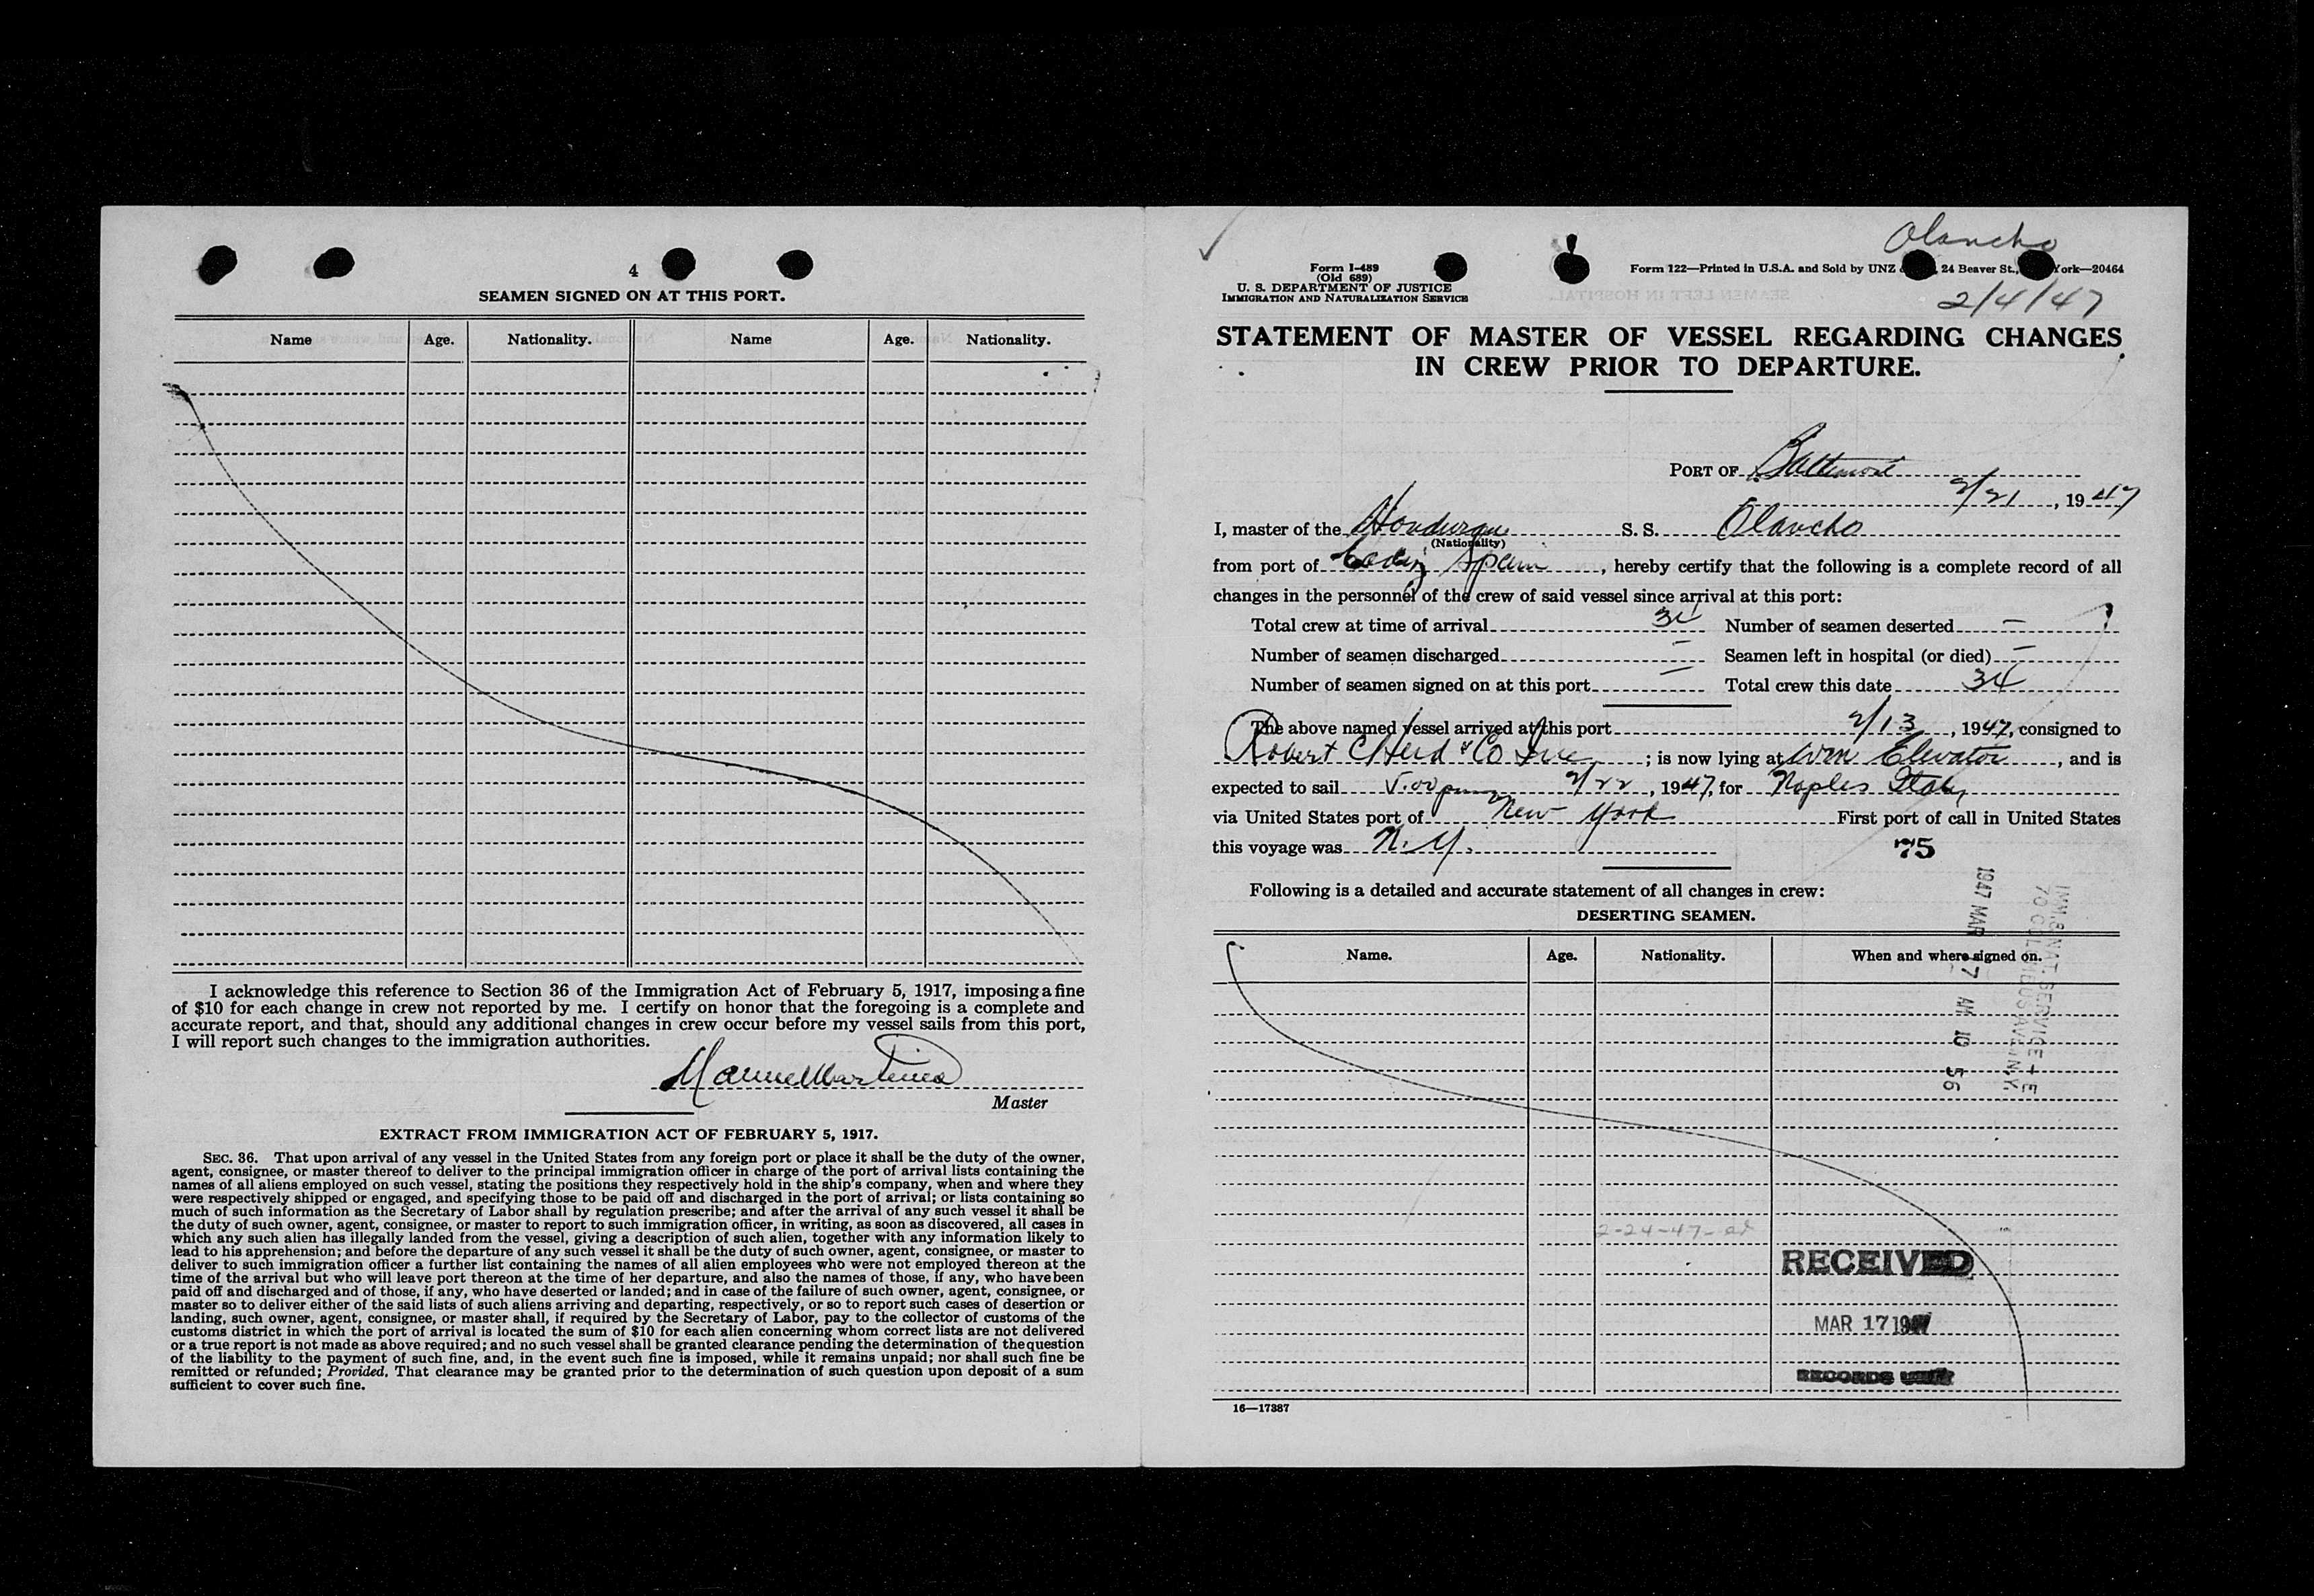 4
SEAMEN SIGNED ON AT THIS PORT.
Name Age. Nationality. Name Age. Nationality.
I acknowledge this reference to Section 36 of the Immigration Act of February 5, 1917, imposing a fine
of $10 for each change in crew not reported by me. I certify on honor that the foregoing is a complete and
accurate report, and that, should any additional changes in crew occur before my vessel sails from this port,
I will report such changes to the immigration authorities.
Master
EXTRACT FROM IMMIGRATION ACT OF FEBRUARY 5, 1917.
SEC. 36. That upon arrival of any vessel in the United States from any foreign port or place it shall be the duty of the owner,
agent, consignee, or master thereof to deliver to the principal immigration officer in charge of the port of arrival lists containing the
names of all aliens employed on such vessel, stating the positions they respectively hold in the ship's company, when and where they
were respectively shipped or engaged, and specifying those to be paid off and discharged in the port of arrival; or lists containing so
much of such information as the Secretary of Labor shall by regulation prescribe; and after the arrival of any such vessel it shall be
the duty of such owner, agent, consignee, or master to report to such immigration officer, in writing, as soon as discovered, all cases in
which any such alien has illegally landed from the vessel, giving a description of such alien, together with any information likely to
lead to his apprehension; and before the departure of any such vessel it shall be the duty of such owner, agent, consignee, or master to
deliver to such immigration officer a further list containing the names of all alien employees who were not employed thereon at the
time of the arrival but who will leave port thereon at the time of her departure, and also the names of those, if any, who have been
paid off and discharged and of those, if any, who have deserted or landed; and in case of the failure of such owner, agent, consignee, or
master so to deliver either of the said lists of such aliens arriving and departing, respectively, or so to report such cases of desertion or
landing, such owner, agent, consignee, or master shall, if required by the Secretary of Labor, pay to the collector of customs of the
customs district in which the port of arrival is located the sum of $10 for each alien concerning whom correct lists are not delivered
or a true report is not made as above required; and no such vessel shall be granted clearance pending the determination of the question
of the liability to the payment of such fine, and, in the event such fine is imposed, while it remains unpaid; nor shall such fine be
remitted or refunded; Provided, That clearance may be granted prior to the determination of such question upon deposit of a sum
sufficient to cover such fine.
Olancho
Form I-489
(Old 689)
U. S. DEPARTMENT OF JUSTICE
IMMIGRATION AND NATURALIZATION SERVICE
Form 122—Printed in U.S.A. and Sold by UNZ 24 Beaver St., York—20464
2/4/47
STATEMENT OF MASTER OF VESSEL REGARDING CHANGES
IN CREW PRIOR TO DEPARTURE.
PORT OF Baltimore
2/21, 1947
I, master of the Honduran S. S. Olancho
(Nationality)
from port of Cadiz Spain, hereby certify that the following is a complete record of all
changes in the personnel of the crew of said vessel since arrival at this port:
Total crew at time of arrival 34 Number of seamen deserted —
Number of seamen discharged — Seamen left in hospital (or died) —
Number of seamen signed on at this port — Total crew this date 34
The above named vessel arrived at this port 2/13, 1947, consigned to
Robert C Herd & Co Inc; is now lying at Wm Elevator, and is
expected to sail 5.00 pm 2/22, 1947, for Naples Italy
via United States port of New York First port of call in United States
this voyage was N.Y.
75
Following is a detailed and accurate statement of all changes in crew:
DESERTING SEAMEN.
Name. Age. Nationality. When and where signed on.
1947 MAR 17 AM 10 56
2-24-47
RECEIVED
MAR 17 1947
RECORDS
16—17387